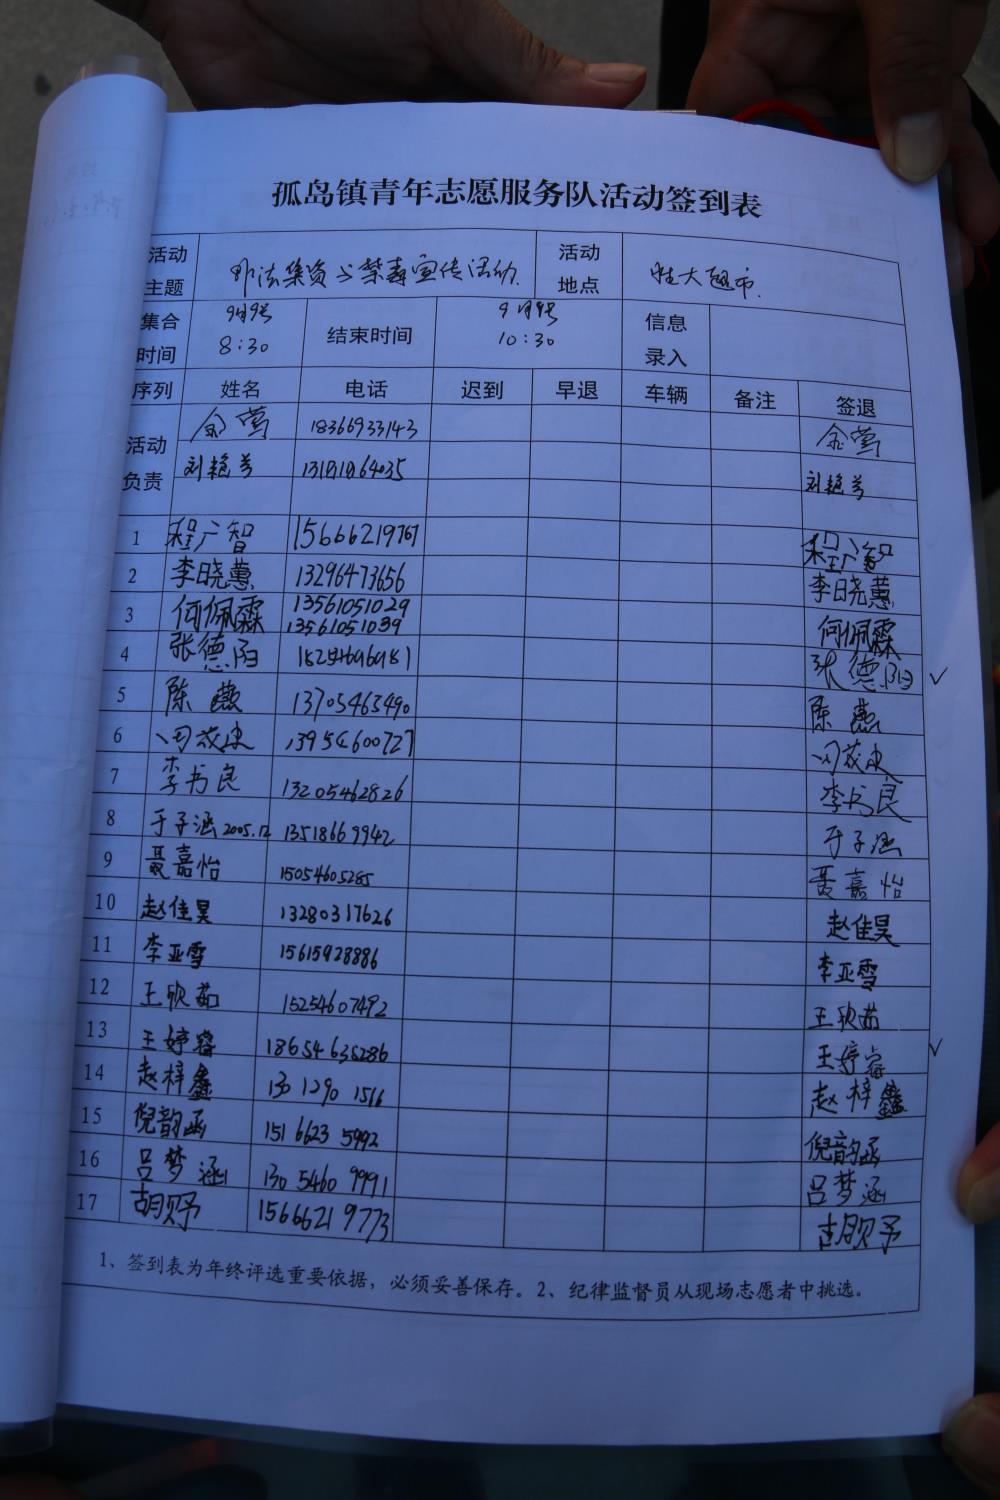 孤岛镇青年志愿服务队活动签到表
活动主题 非法集资与禁毒宣传活动 活动地点 胜大超市
集合时间 9月9号 8:30 结束时间 9月9号 10:30 信息录入
序列 姓名 电话 迟到 早退 车辆 备注 签退
活动负责 金莺 18366933143 金莺
刘艳芳 13181864035 刘艳芳
1 程广智 15666219767 程广智
2 李晓蕙 13296473656 李晓蕙
3 何佩霖 13561051029 13561051039 何佩霖
4 张德阳 张德阳 ✓
5 陈燕 13705465490 陈燕
6 13954600727
7 李书良 13205462826 李书良
8 于子涵 2005.12 13518669942 于子涵
9 聂嘉怡 15054605285 聂嘉怡
10 赵佳昊 13280317626 赵佳昊
11 李亚雪 15615928886 李亚雪
12 王欣茹 15254607492 王欣茹
13 王婷睿 18654635286 王婷睿 ✓
14 赵梓鑫 130 1290 1566 赵梓鑫
15 倪韵函 151 6623 5992 倪韵函
16 吕梦涵 130 5460 9991 吕梦涵
17 胡贝予 1566621 9773 胡贝予
1、签到表为年终评选重要依据，必须妥善保存。2、纪律监督员从现场志愿者中挑选。